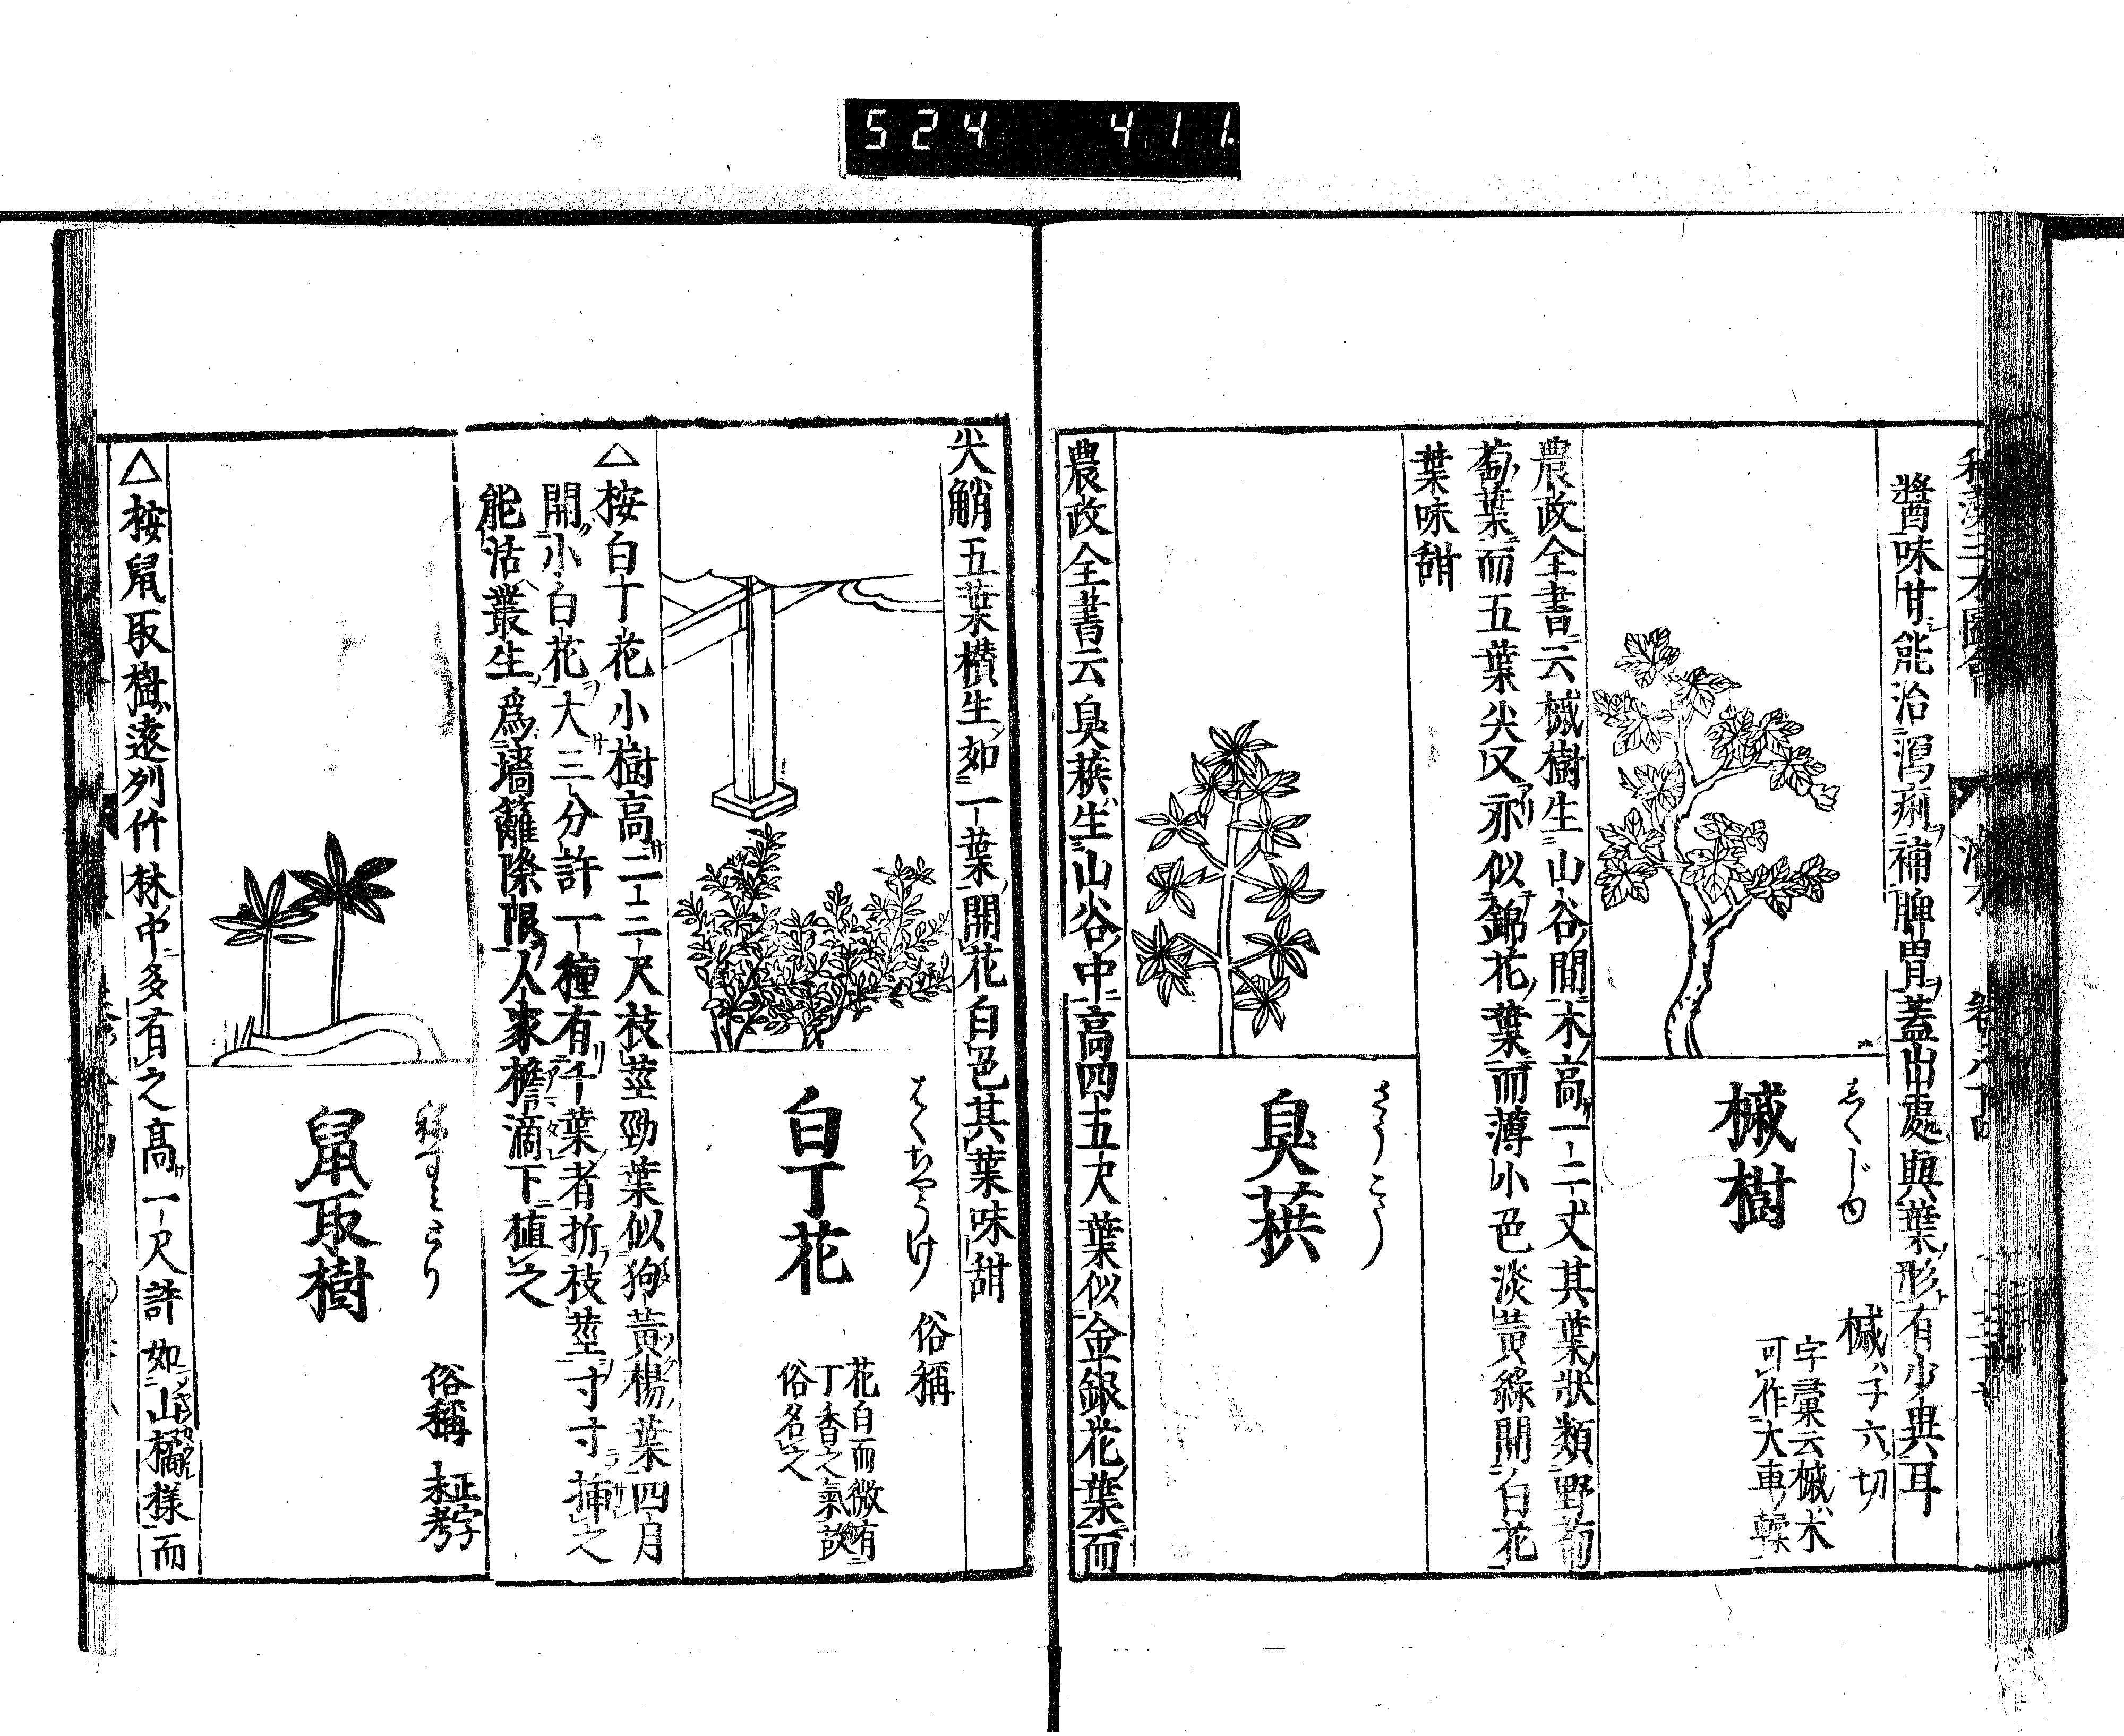 524 411
醬味甘能治瀉痢補脾胃蓋出處與葉形有少異耳
しくじゆ
槭樹
槭ハ子六切
字彙云槭ハ木
可作大車ノ輮
農政全書云槭樹生山谷ノ間木高一二丈其葉狀類野葡
萄葉而五葉尖叉亦似錦花葉而薄小色淡黃綠開白花
葉味甜
さうこう
臭䕛
農政全書云臭䕛生山谷中高四五尺葉似金銀花葉而
尖艄五葉攅生如一葉開花白色其葉味甜
はくちやうけ
俗稱
白丁花
花白而微有
丁香之氣故
俗名之
△按白丁花小樹高二三尺枝莖勁葉似狗黃楊葉四月
開小白花大三分許一種有千葉者折枝莖寸寸揷之
能活叢生爲墻籬際限人家檐滴下植之
ねずみとり
俗稱
正字
未考
鼠取樹
△按鼠取樹遠州竹林中多有之高一尺許如山橘樣而